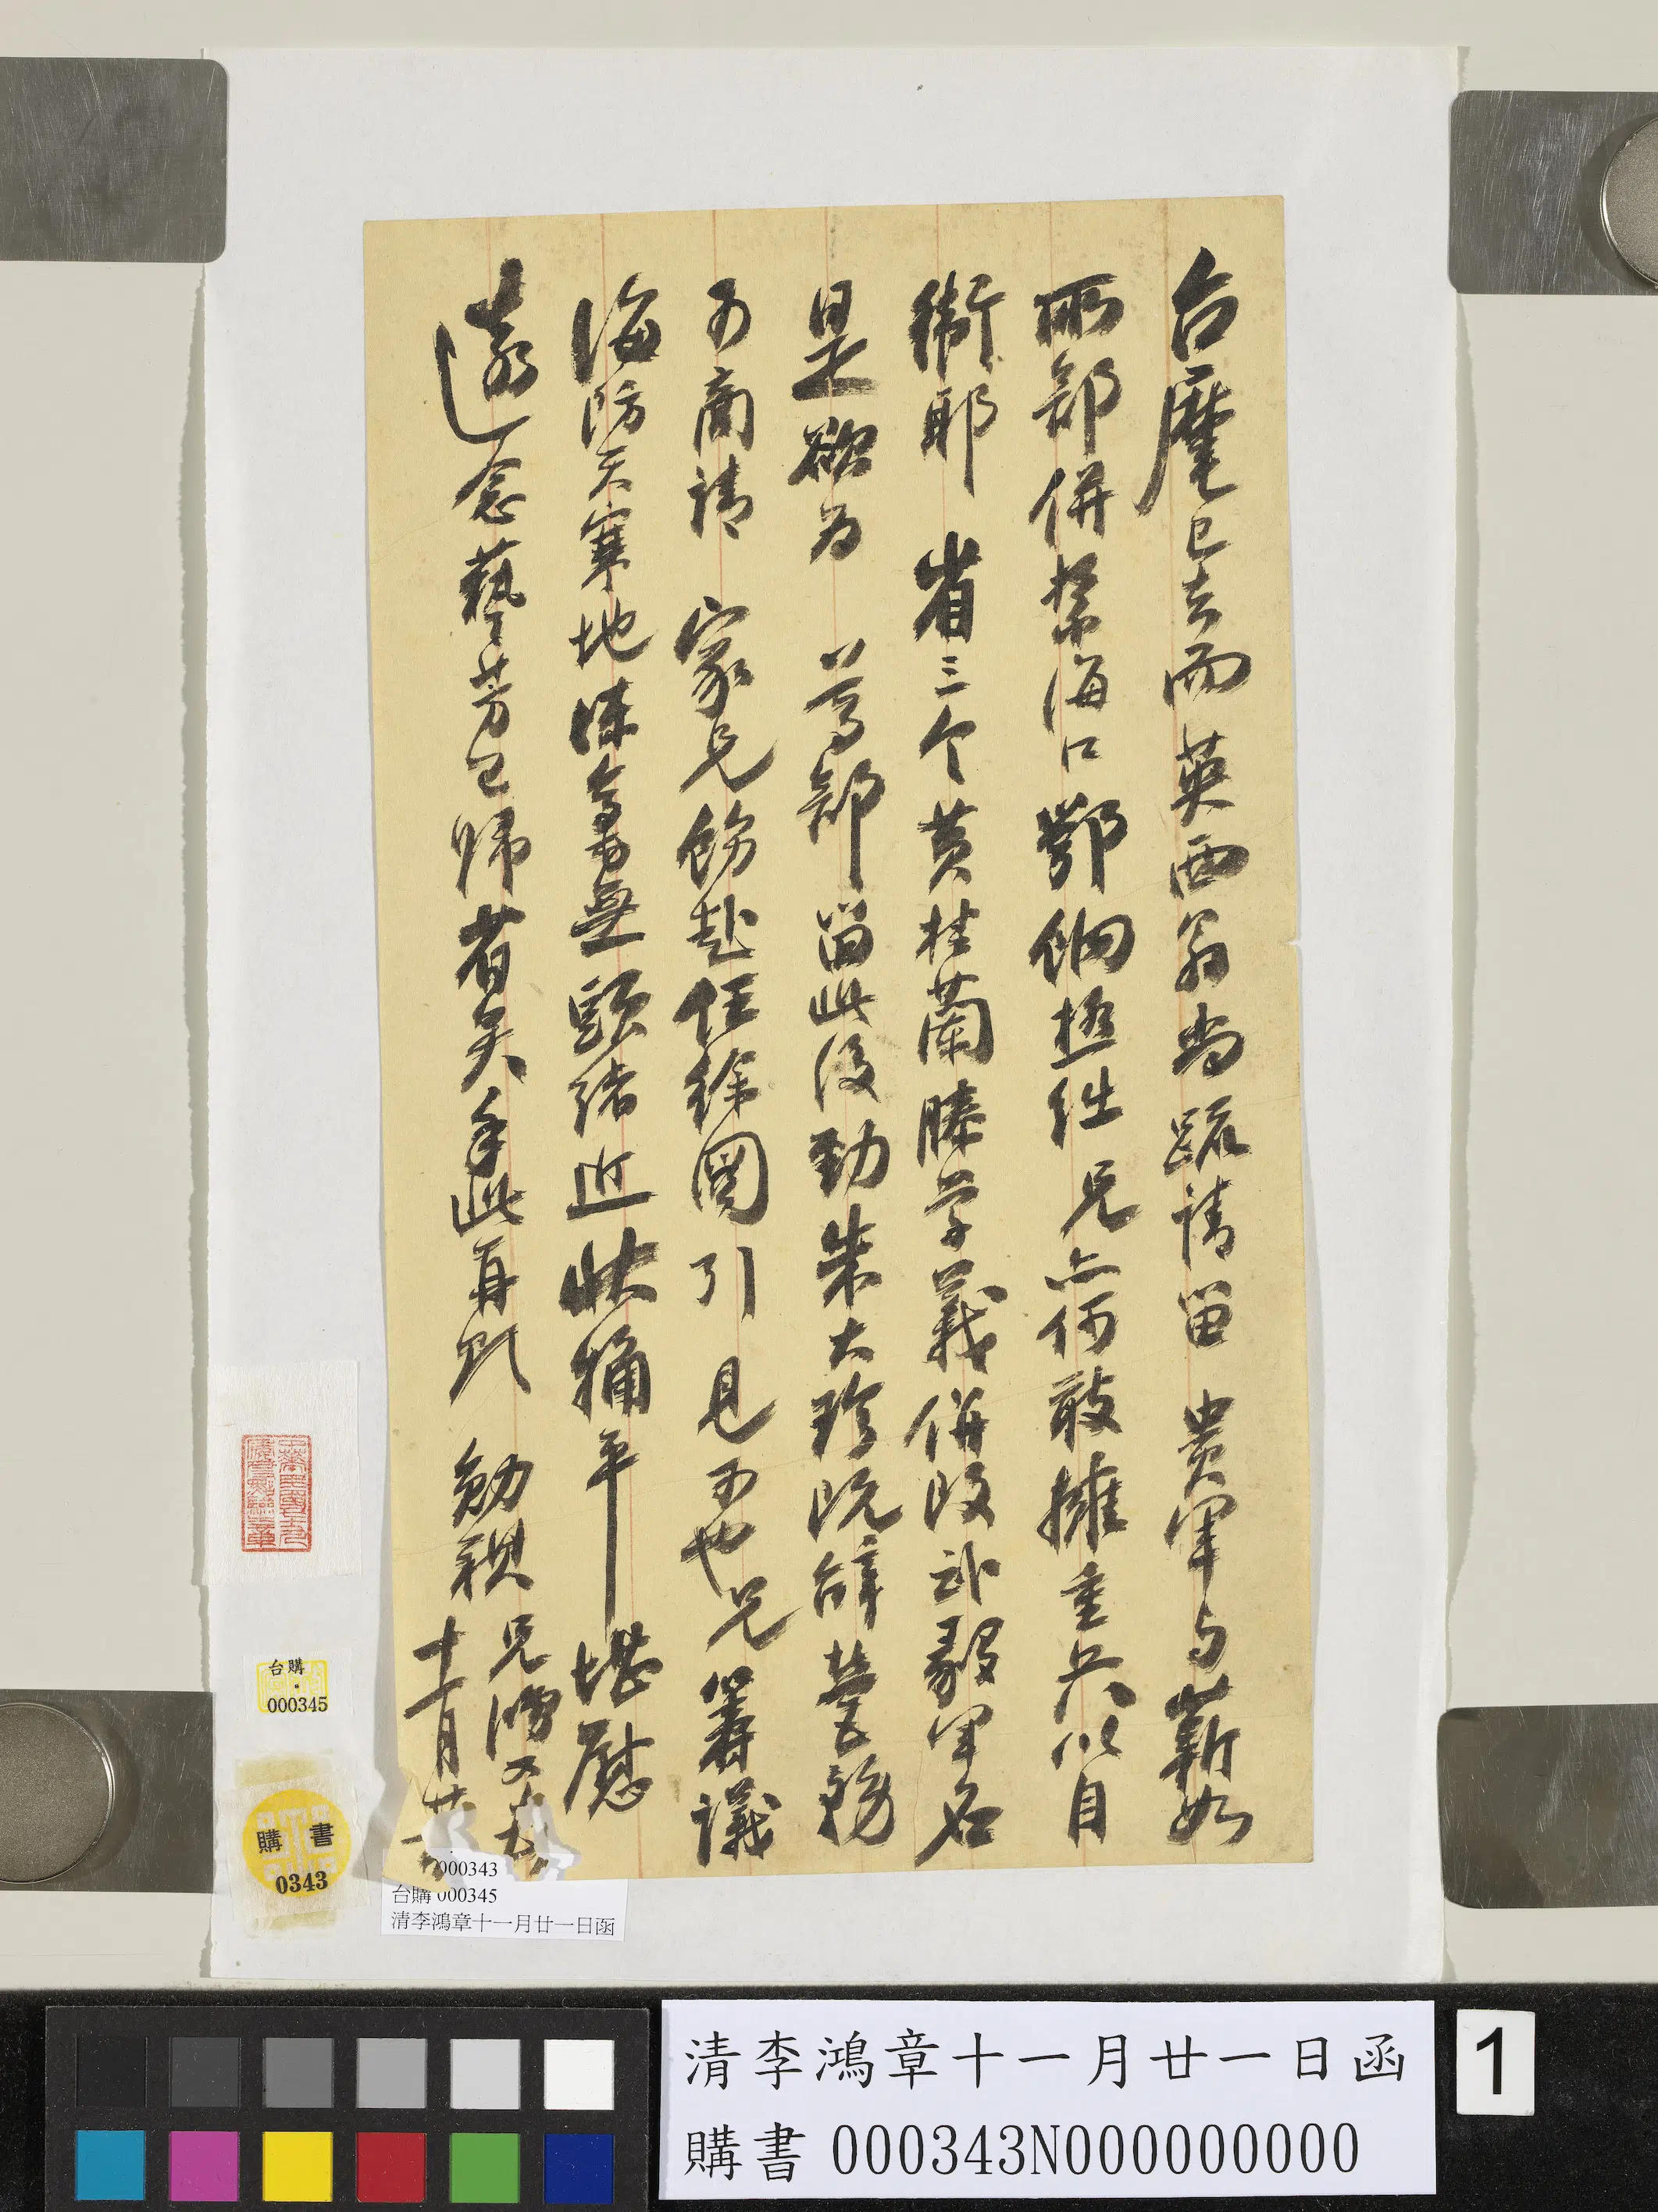 台麾已去而英西翁尚疏請留 貴軍與蘄如
兩部併紮海口鄂餉極絀兄亦何敢擁重兵以自
衛耶 省三介黃桂蘭滕學義併改武毅軍名
是欲爲 尊部留此後勁朱大珍既辭營務
可商請 家兄飭赴任徐圖引 見可也兄籌議
海防天寒地凍毫無頭緒近狀稍平堪慰
遠念藝芳已歸省矣手此再頌 勋親兄鴻又頓
十一月廿一
台購
000345
購書
0343
000343
台購 000345
清李鴻章十一月廿一日函
清李鴻章十一月廿一日函
購書 000343N000000000
1